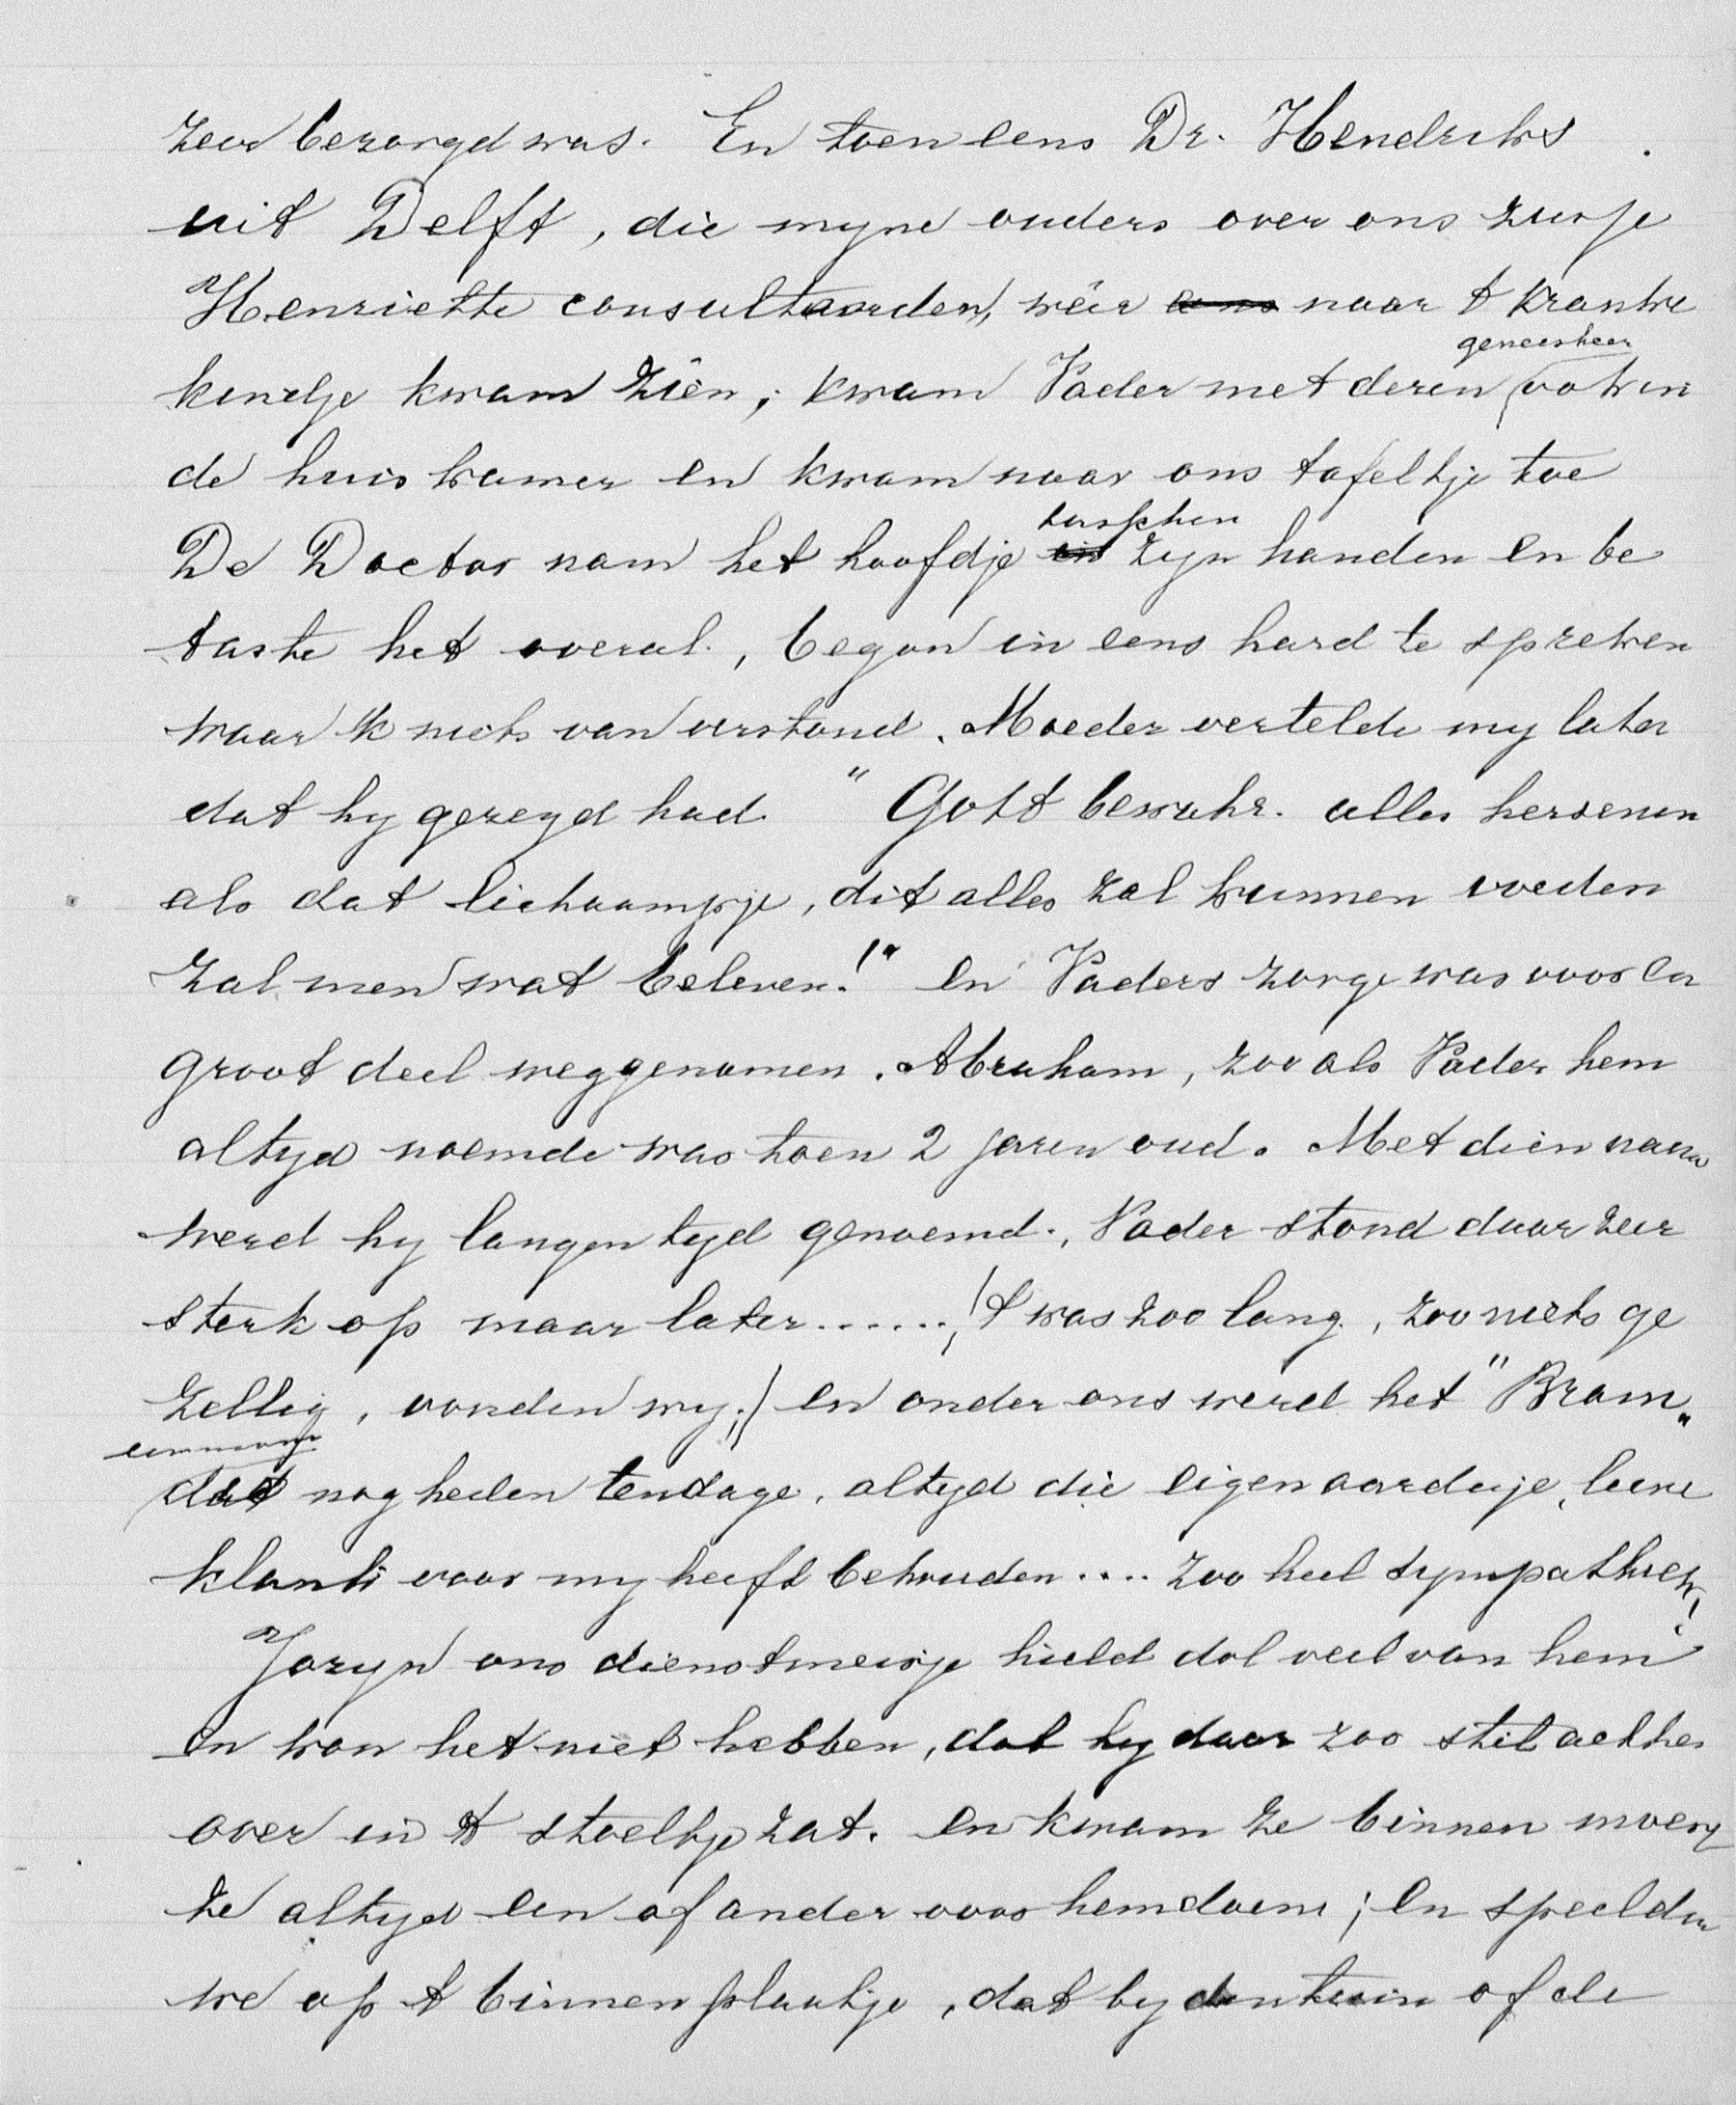 zeer bezorgd was. En toen eens Dr. Hendriks
uit Delft, die myne ouders over ons zusje
Henriette consulteerden, wéér naar 't kranke
geneesheer
kindje kwam zien, kwam Vader met dezen ook in
de huiskamer en kwam naar ons tafeltje toe
tusschen
De Doctor nam het hoofdje in zyn handen en be
taste het overal, begon in eens hard te spreken
waar ik niets van verstond. Moeder vertelde my later
dat hy gezegd had "Gott bewahr. alles hersenen
als dat lichaampje, dit alles zal kunnen voeden
zal men wat beleven!" en Vaders zorge was voor een
groot deel weggenomen. Abraham, zoo als Vader hem
altyd noemde was toen 2 jaren oud. Met dien naam
werd hy langen tyd genoemd., Vader stond daar zeer
sterk op maar later......, 't was zoo lang, zoo niets ge
zellig, vonden wy;) en onder ons werd het "Bram"
dat nog heden tendage, altyd die eigenaardige, lieve
klank voor my heeft behouden.... zoo heel sympathiek!
Jozyn ons dienstmeisje hield dol veel van hem
en kon het niet hebben, dat hy daar zoo stil achter
over in 't stoeltje zat. en kwam ze binnen moest
ze altyd een of ander voor hem doen; en speelden
we op 't binnenplaatje, dat by den tuin of de